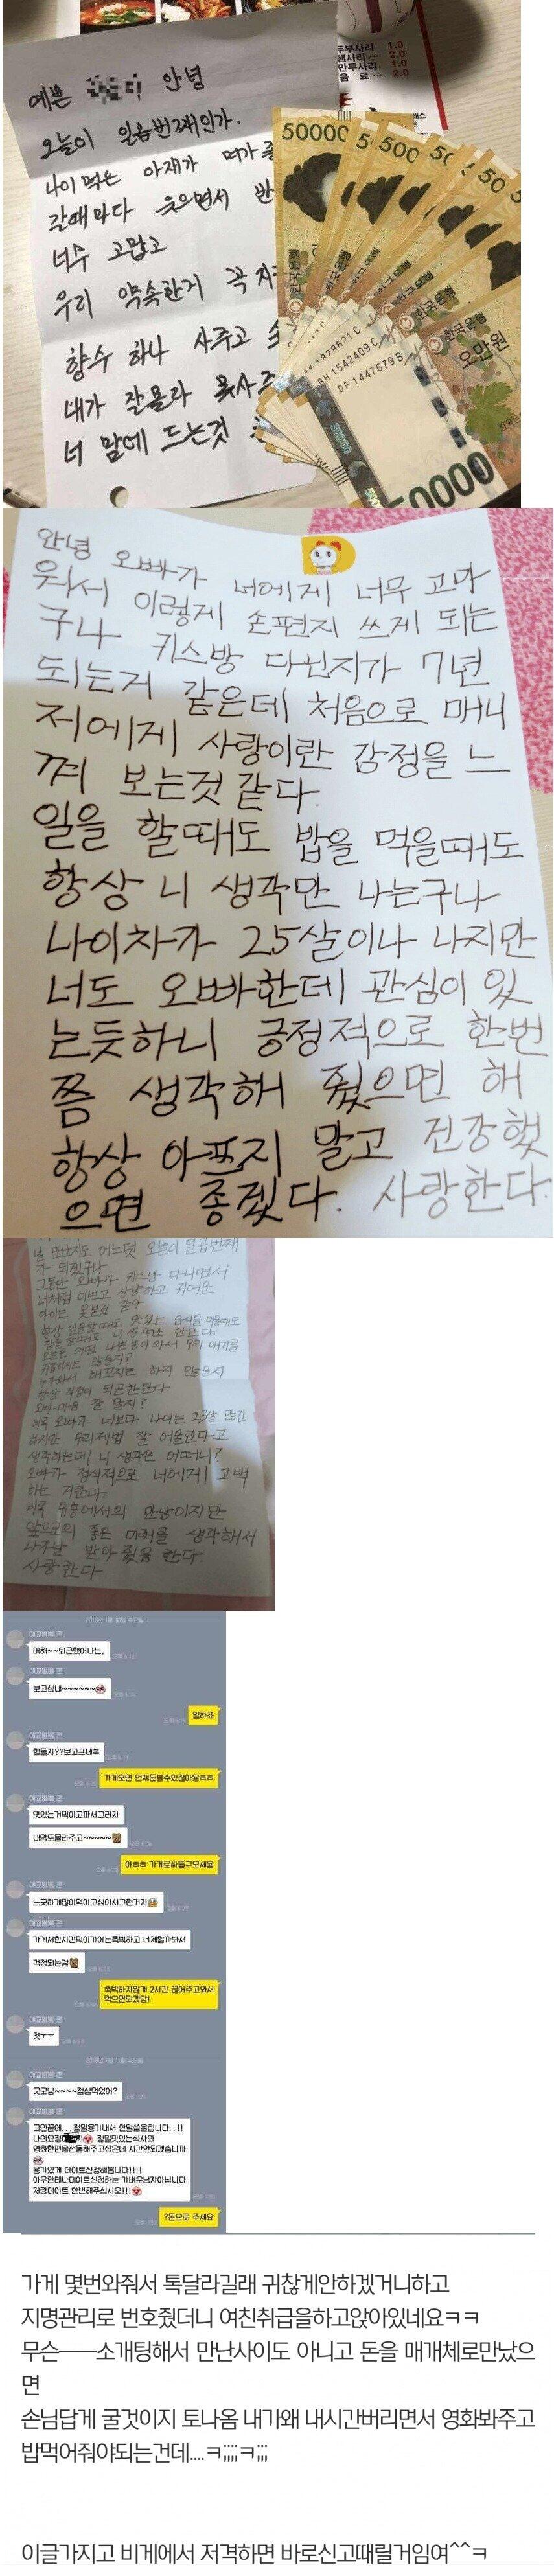 두부사리 1.0
만두사리 1.0
음료 ... 2.0
예쁜 안녕
오늘이 일곱번째인가.
나이 먹은 아재가 뭐가 좋
갈때마다 웃으면서 반
너무 고맙고
우리 약속한거 꼭 지
향수 하나 사주고
내가 잘몰라 못사주
너 맘에 드는것
50000
한국은행
오만원
BH 1542409 C
DF 1447679 B
안녕 오빠가 너에게 너무 고마
워서 이렇게 손편지 쓰게 되는
구나 키스방 다닌지가 7년
되는거 같은데 처음으로 매니
저에게 사랑이란 감정을 느
껴 보는것 같다
일을 할때도 밥을 먹을때도
항상 니 생각만 나는구나
나이차가 25살이나 나지만
너도 오빠한데 관심이 있
는듯하니 긍정적으로 한번
쯤 생각해 줬으면 해
항상 아프지 말고 건강했
으면 좋겠다. 사랑한다.
널 만난지도 어느덧 오늘이 일곱번째
가 되었구나
그동안 오빠가 키스방 다니면서
너처럼 이쁘고 상냥하고 귀여운
아이는 못본거 같다
항상 일을할때도 맛있는 음식을 먹을때도
잠을 잘때도 니 생각만 한단다
항상 걱정이 되곤한단다
오빠 마음 잘 알지?
비록 오빠가 너보다 나이는 23살 많고
하지만 우리제법 잘 어울린다고
생각하는데 니 생각은 어떠니?
오빠가 정식적으로 너에게 고백
하는 거란다.
비록 업소에서의 만남이지만
앞으로의 좋은 미래를 생각해서
나의맘 받아 줬음 한다
사랑한다
2018년 1월 10일 수요일
머해~~퇴근했어나는,
보고싶네~~~~~~
일하죠
힘들지??보고프네ㅎ
가게오면 언제든볼수있잖아용ㅎㅎ
맛있는거먹이고파서그러치
내맘도몰라주고~~~~~
아ㅎㅎ 가게로싸들구오세용
느긋하게많이먹이고싶어서그런거지
가게서한시간먹이기에는촉박하고 너체할까봐서
걱정되는걸
촉박하지않게 2시간 끊어주고와서
먹으면되겠당!
챗ㅜㅜ
2018년 1월 11일 목요일
굿모닝~~~~점심먹었어?
고민끝에...정말용기내서 한말씀올립니다..!!
나의요정 정말맛있는식사와
영화한편을선물해주고싶은데 시간안되겠습니까
용기있게 데이트신청해봅니다!!!!
아무한테나데이트신청하는 가벼운남자아닙니다
저랑데이트 한번해주십시오!!!
?돈으로 주세요
가게 몇번와줘서 톡달라길래 귀찮게안하겠거니하고
지명관리로 번호줬더니 여친취급을하고앉아있네요ㅋㅋ
무슨——소개팅해서 만난사이도 아니고 돈을 매개체로만났으
면
손님답게 굴것이지 토나옴 내가왜 내시간버리면서 영화봐주고
밥먹어줘야되는건데....ㅋ;;;;ㅋ;;;
이글가지고 비게에서 저격하면 바로신고때릴거임여^^ㅋ